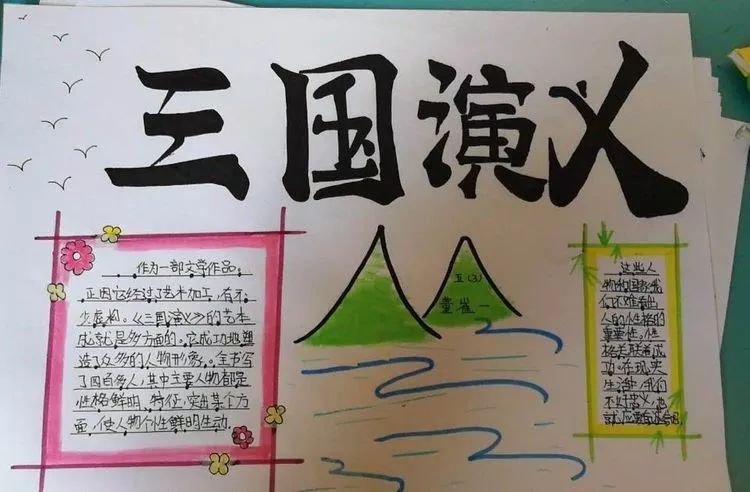 三国演义
作为一部文学作品,
正因它经过了艺术加工,有不
少虚构。《三国演义》的艺术
成就是多方面的。它成功地塑
造了众多的人物形象。全书写
了四百多人,其中主要人物都是
性格鲜明,特征,突出某个方
面,使人物个性鲜明生动。
五(3)
童崔一
这些人
物和国势,我
们不难看出
人的性格的
重要性。性
格关联着成
功。在现实
生活中,我们